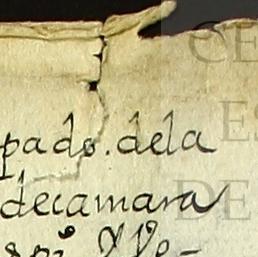 pado. dela
decamara
CE
ES
DE